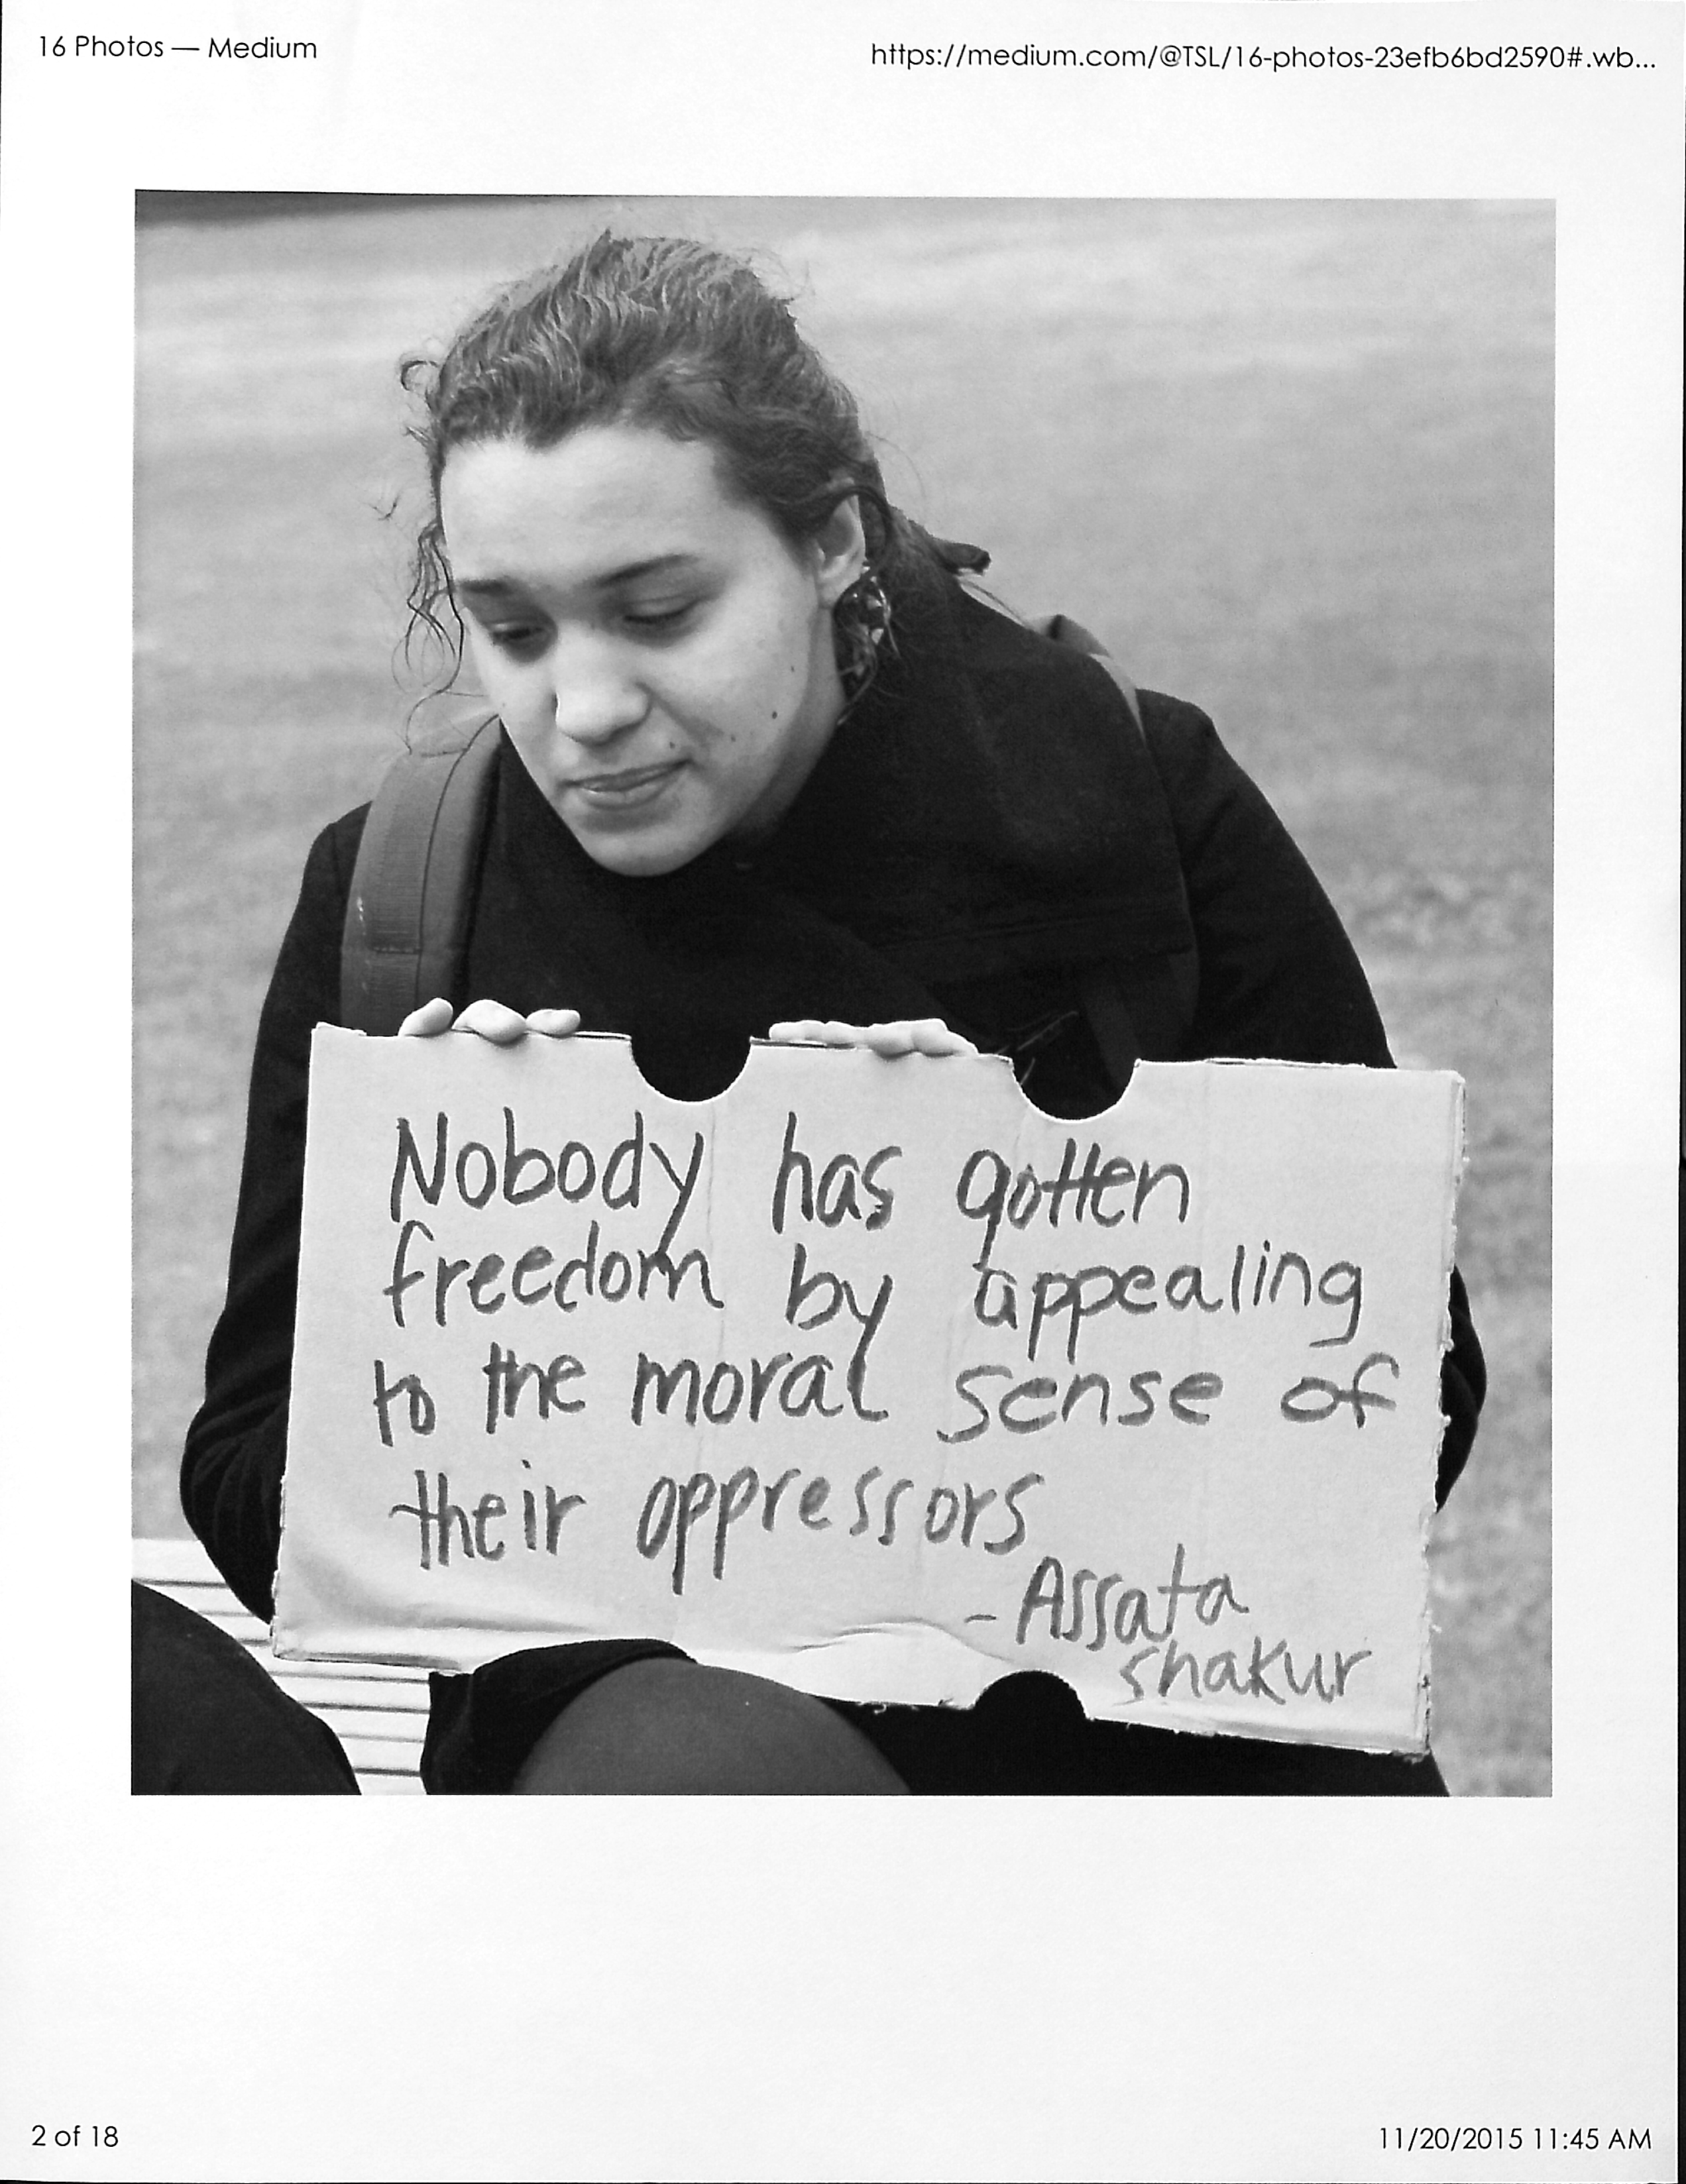 16 Photos — Medium
https://medium.com/@TSL/16-photos-23efb6bd2590#.wb...
Nobody has gotten
freedom by appealing
to the moral sense of
their oppressors
- Assata
Shakur
2 of 18
11/20/2015 11:45 AM